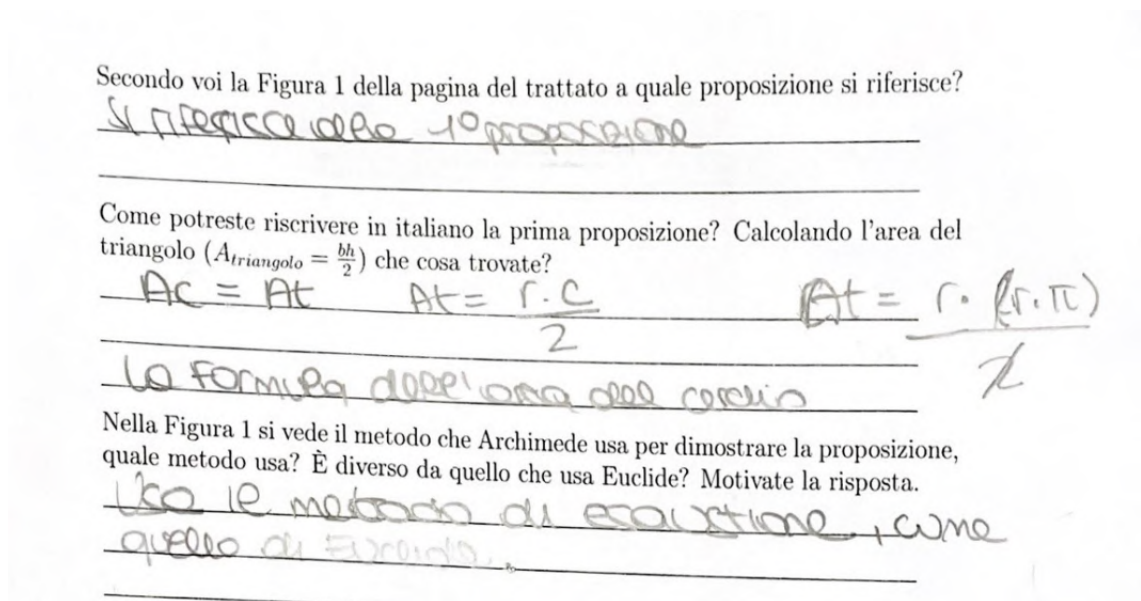 Secondo voi la Figura 1 della pagina del trattato a quale proposizione si riferisce?
Si riferisce alla 1° proposizione
Come potreste riscrivere in italiano la prima proposizione? Calcolando l'area del
triangolo (A_{triangolo} = \frac{bh}{2}) che cosa trovate?
Ac = At At = \frac{r \cdot c}{2} At = \frac{r \cdot (2r \cdot π)}{2}
la formula dell'area del cerchio
Nella Figura 1 si vede il metodo che Archimede usa per dimostrare la proposizione,
quale metodo usa? È diverso da quello che usa Euclide? Motivate la risposta.
Usa il metodo di esaustione, come
quello di Euclide.